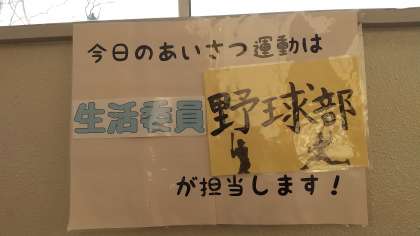 今日のあいさつ運動は
生活委員 野球部
が担当します!